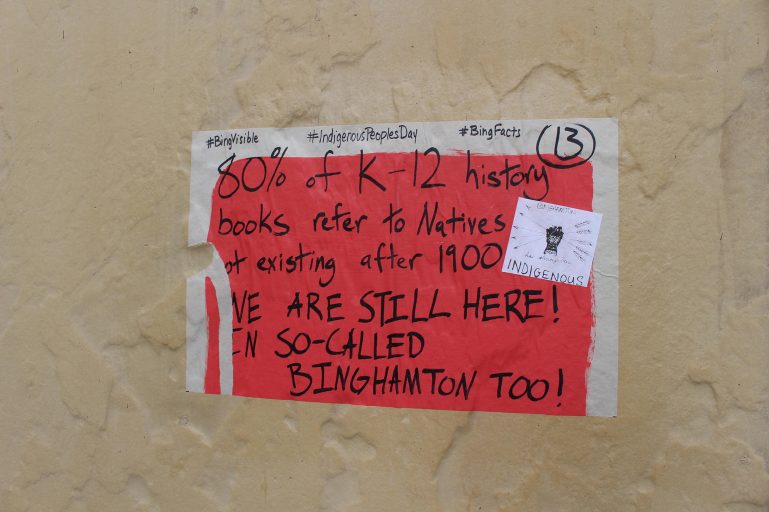 #BingVisible #IndigenousPeoplesDay #BingFacts 13
80% of K-12 history
books refer to Natives
ot existing after 1900
WE ARE STILL HERE!
IN SO-CALLED
BINGHAMTON TOO!
INDIGENOUS